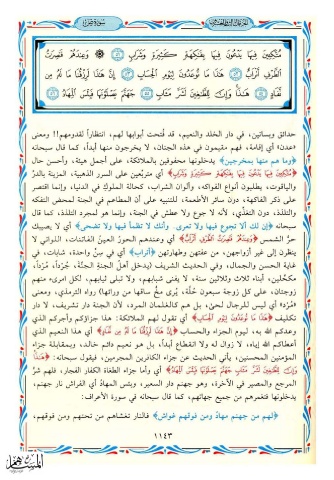 مُتَّكِئِينَ فِيهَا يَدْعُونَ فِيهَا بِفَاكِهَةٍ كَثِيرَةٍ وَشَرَابٍ ۝ وَعِندَهُمْ قَاصِرَاتُ
الطَّرْفِ أَتْرَابٌ ۝ هَٰذَا مَا تُوعَدُونَ لِيَوْمِ الْحِسَابِ ۝ إِنَّ هَٰذَا لَرِزْقُنَا مَا لَهُ مِن
نَّفَادٍ ۝ هَٰذَا وَإِنَّ لِلطَّاغِينَ لَشَرَّ مَآبٍ ۝ جَهَنَّمَ يَصْلَوْنَهَا فَبِئْسَ الْمِهَادُ
حدائق وبساتين، في دار الخلد والنعيم، قد فُتحت أبوابها لهم، انتظاراً لقدومهم!! ومعنى
«عدن» أي إقامة، فهم مقيمون في هذه الجنان، لا يخرجون منها أبداً، كما قال سبحانه
﴿وما هم منها بمخرجين﴾ يدخلونها محفوفين بالملائكة، على أجمل هيئة، وأحسن حال
﴿مُتَّكِئِينَ فِيهَا يَدْعُونَ فِيهَا بِفَاكِهَةٍ كَثِيرَةٍ وَشَرَابٍ﴾ أي متربعين على السرر الذهبية، المزينة بالدرّ
والياقوت، يطلبون أنواع الفواكه، وألوان الشراب، كحالة الملوك في الدنيا، وإنما اقتصر
على ذكر الفاكهة، دون سائر الأطعمة، للتنبيه على أن المطاعم في الجنة لمحض التفكه
والتلذذ، دون التغذّي، لأنه لا جوع ولا عطش في الجنة، وإنما هو لمجرد التلذذ، كما قال
سبحانه ﴿إن لك ألا تجوع فيها ولا تعرى وأنك لا تظمأ فيها ولا تضحى﴾ أي لا يصيبك
حرّ الشمس ﴿وَعِندَهُمْ قَاصِرَاتُ الطَّرْفِ أَتْرَابٌ﴾ أي وعندهم الحورُ العينُ الفاتنات، اللواتي لا
ينظرن إلى غير أزواجهن، من عفتهن وطهارتهن ﴿أتراب﴾ أي في سنٍّ واحدة، شابات، في
غاية الحسن والجمال، وفي الحديث الشريف (يدخل أهلُ الجنةِ الجنّة، جُرْداً، مُرْداً،
مكحَّلين، أبناء ثلاث وثلاثين سنة، لا يفنى شبابهم، ولا تبلى ثيابهم، لكل امرىء منهم
زوجتان، على كل زوجة سبعون حُلَّة، يُرى مخُّ ساقها من ورائها) رواه الترمذي، ومعنى
«مُرْد» أي ليس للرجال لحىً، بل هم كالغلمان المرد، لأن الجنة دار تشريف، لا دار
تكليف ﴿هَٰذَا مَا تُوعَدُونَ لِيَوْمِ الْحِسَابِ﴾ أي تقول لهم الملائكة: هذا جزاؤكم وأجركم الذي
وعدكم الله به، ليوم الجزاء والحساب ﴿إِنَّ هَٰذَا لَرِزْقُنَا مَا لَهُ مِن نَّفَادٍ﴾ أي هذا النعيم الذي
أعطاكم الله إياه، لا زوال له ولا انقطاع أبداً، بل هو نعيم دائم خالد، وبمقابلة جزاء
المؤمنين المحسنين، يأتي الحديث عن جزاء الكافرين المجرمين، فيقول سبحانه: ﴿هَٰذَا
وَإِنَّ لِلطَّاغِينَ لَشَرَّ مَآبٍ جَهَنَّمَ يَصْلَوْنَهَا فَبِئْسَ الْمِهَادُ﴾ أي وأما جزاء الطغاة الكفار الفجار، فلهم شر
المرجع والمصير في الآخرة، وهو جهنم دار السعير، وبئس المهادُ أي الفراش نار جهنم،
يدخلونها فتغمرهم من جميع جهاتهم، كما قال سبحانه في سورة الأعراف:
﴿لهم من جهنم مهادٌ ومن فوقهم غواش﴾ فالنار تغشاهم من تحتهم ومن فوقهم،
١١٤٣